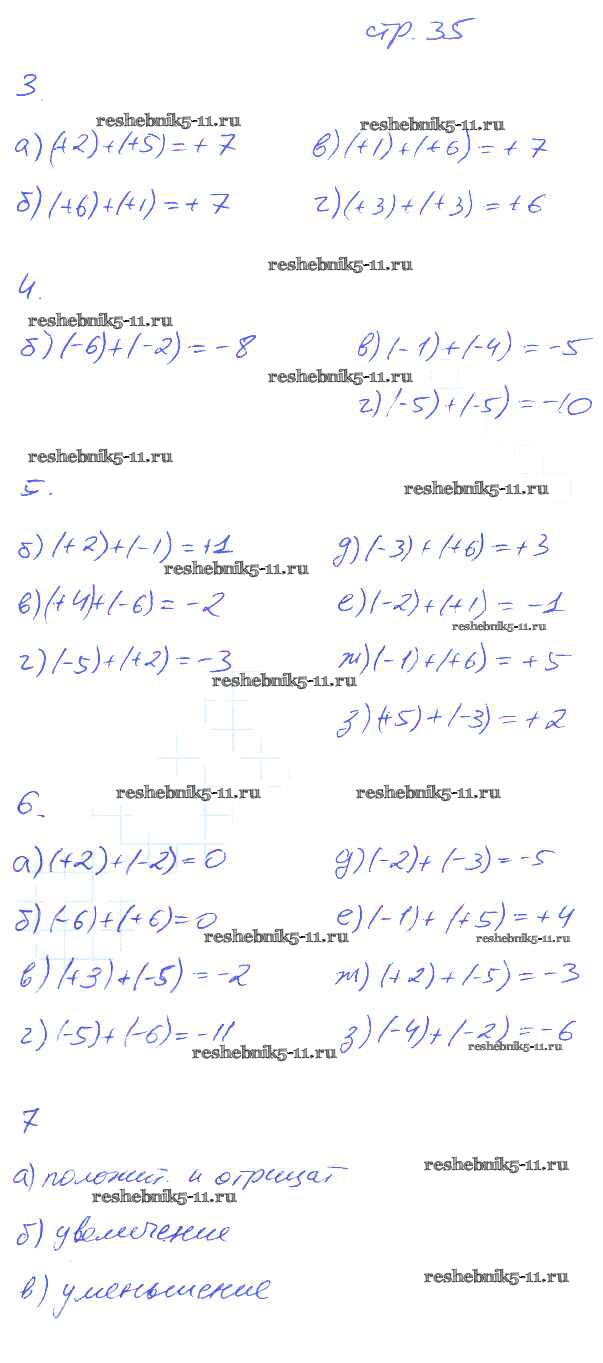 стр. 35
3.
reshebnik5-11.ru
reshebnik5-11.ru
а) (+2)+(+5)=+7 в) (+1)+(+6)=+7
б) (+6)+(+1)=+7 г) (+3)+(+3)=+6
reshebnik5-11.ru
4.
reshebnik5-11.ru
б) (-6)+(-2)=-8 в) (-1)+(-4)=-5
reshebnik5-11.ru
г) (-5)+(-5)=-10
reshebnik5-11.ru
5.
reshebnik5-11.ru
б) (+2)+(-1)=+1 д) (-3)+(+6)=+3
reshebnik5-11.ru
в) (+4)+(-6)=-2 е) (-2)+(+1)=-1
reshebnik5-11.ru
г) (-5)+(+2)=-3 ж) (-1)+(+6)=+5
reshebnik5-11.ru
з) (+5)+(-3)=+2
reshebnik5-11.ru reshebnik5-11.ru
6.
а) (+2)+(-2)=0 д) (-2)+(-3)=-5
б) (-6)+(+6)=0 е) (-1)+(+5)=+4
reshebnik5-11.ru reshebnik5-11.ru
в) (+3)+(-5)=-2 ж) (+2)+(-5)=-3
г) (-5)+(-6)=-11 з) (-4)+(-2)=-6
reshebnik5-11.ru reshebnik5-11.ru
7
reshebnik5-11.ru
а) положит. и отрицат
reshebnik5-11.ru
б) увеличение
reshebnik5-11.ru
в) уменьшение